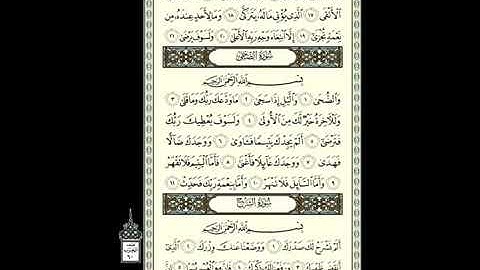 ٱلْأَتْقَى ١٧ ٱلَّذِى يُؤْتِى مَالَهُۥ يَتَزَكَّىٰ ١٨ وَمَا لِأَحَدٍ عِندَهُۥ مِن
نِّعْمَةٍ تُجْزَىٰٓ ١٩ إِلَّا ٱبْتِغَآءَ وَجْهِ رَبِّهِ ٱلْأَعْلَىٰ ٢٠ وَلَسَوْفَ يَرْضَىٰ ٢١
سُورَةُ الضُّحَىٰ
بِسْمِ ٱللَّهِ ٱلرَّحْمَٰنِ ٱلرَّحِيمِ
وَٱلضُّحَىٰ ١ وَٱلَّيْلِ إِذَا سَجَىٰ ٢ مَا وَدَّعَكَ رَبُّكَ وَمَا قَلَىٰ ٣
وَلَلْءَاخِرَةُ خَيْرٌ لَّكَ مِنَ ٱلْأُولَىٰ ٤ وَلَسَوْفَ يُعْطِيكَ رَبُّكَ
فَتَرْضَىٰٓ ٥ أَلَمْ يَجِدْكَ يَتِيمًا فَـَٔاوَىٰ ٦ وَوَجَدَكَ ضَآلًّا
فَهَدَىٰ ٧ وَوَجَدَكَ عَآئِلًا فَأَغْنَىٰ ٨ فَأَمَّا ٱلْيَتِيمَ فَلَا تَقْهَرْ
٩ وَأَمَّا ٱلسَّآئِلَ فَلَا تَنْهَرْ ١٠ وَأَمَّا بِنِعْمَةِ رَبِّكَ فَحَدِّثْ ١١
سُورَةُ الشَّرْحِ
بِسْمِ ٱللَّهِ ٱلرَّحْمَٰنِ ٱلرَّحِيمِ
أَلَمْ نَشْرَحْ لَكَ صَدْرَكَ ١ وَوَضَعْنَا عَنكَ وِزْرَكَ ٢ ٱلَّذِىٓ
أَنقَضَ ظَهْرَكَ ٣ وَرَفَعْنَا لَكَ ذِكْرَكَ ٤ فَإِنَّ مَعَ ٱلْعُسْرِ يُسْرًا ٥ إِنَّ